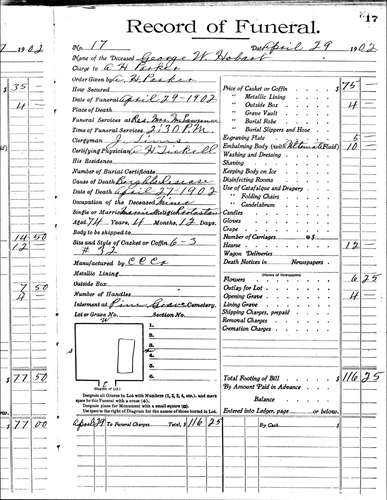 17
Record of Funeral.
7 1902
No. 17 Date April 29 1902
Name of the Deceased George W. Hobart
Charge to A H Parker
Order Given by A H Parker
How Secured
Date of Funeral April 29-1902
Place of Death
Funeral Services at Res. Mrs.
Time of Funeral Services 2:30 P.M.
Clergyman J. Sims
Certifying Physician A H Tickell
His Residence
Number of Burial Certificate
Cause of Death Brights Disease
Date of Death April 27-1902
Occupation of the Deceased Miner
Single or Married Religion
Aged 74 Years, 4 Months, 12 Days
Body to be shipped to
Size and Style of Casket or Coffin 6-3
# 32
Manufactured by C C Co
Metallic Lining
Outside Box
Number of Handles
Interment at Pine Grove Cemetery.
Lot or Grave No. Section No.
W
1.
2.
3.
4.
5.
6.
7.
8.
E
(Diagram of Lot.)
Designate all Graves in Lot with Numbers (1, 2, 3, 4, etc.), and mark
space for this Funeral with a cross (x).
Designate place for Monument with a small square (□).
Use space to the right of Diagram for the names of those buried in Lot.
April 29 To Funeral Charges Total, $ 116 25
Price of Casket or Coffin $ 75
" Metallic Lining
" Outside Box 4
" Grave Vault
" Burial Robe
" Burial Slippers and Hose
Engraving Plate 5
Embalming Body (with Fluid) 10
Washing and Dressing
Shaving
Keeping Body on Ice
Disinfecting Rooms
Use of Catafalque and Drapery
" Folding Chairs
" Candelabrum
Candles
Gloves
Crape
Number of Carriages @$
Hearse 12
Wagon Deliveries
Death Notices in Newspapers
(Names of Newspapers)
Flowers 6 25
Outlay for Lot
Opening Grave 4
Lining Grave
Shipping Charges, prepaid
Removal Charges
Cremation Charges
Total Footing of Bill $ 116 25
By Amount Paid in Advance
Balance
Entered into Ledger, page or below.
By Cash $
35
4
14 50
12
7 50
4
$ 77 50
$ 77 00